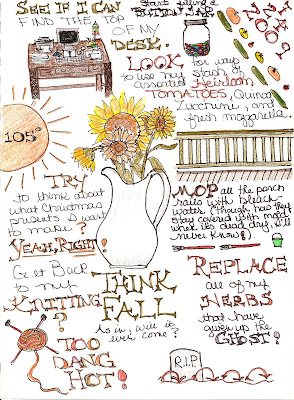 SEE IF I CAN
FIND THE TOP
OF MY
DESK.
Start filling a
BUTTON JAR
LOOK for ways
to use my stash of
assorted Heirloom
TOMATOES, Quinoa,
Zucchini, and
fresh mozzarella.
105°
TRY
to think about
what Christmas
presents I want
to make?
YEAH, RIGHT!
MOP all the porch
rails with bleach
water (though how they
stay covered with mold
when it's dead dry, I'll
never know!).
Get Back
to my
KNITTING
?
TOO
DANG
HOT!
THINK
FALL
As in, will it
ever come?
REPLACE
all of my
HERBS
that have
given up the
GHOST!
R.I.P